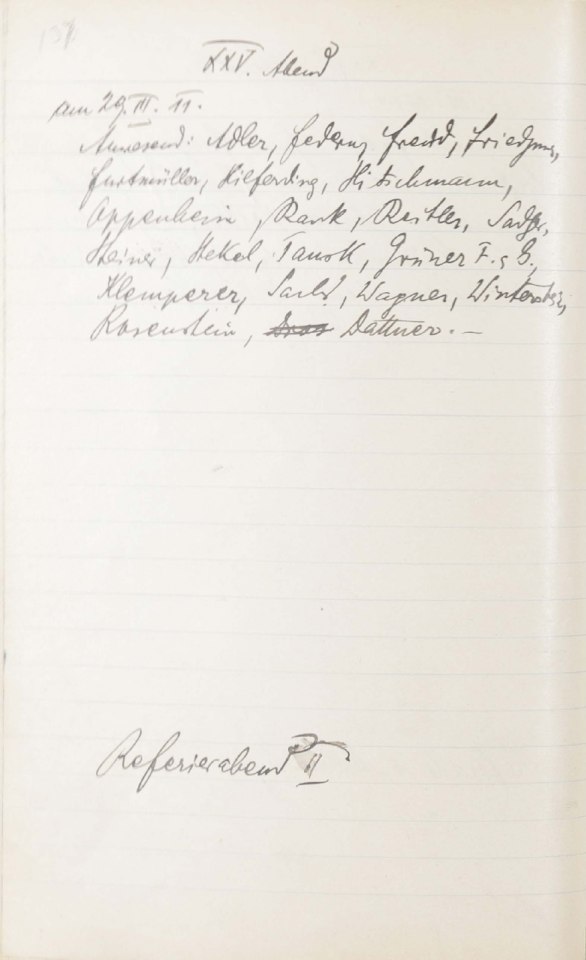 137
XXV. Abend
am 29. III. 11.
Anwesend: Adler, Federn, Freud, Friedjung,
Furtmüller, Hilferding, Hitschmann,
Oppenheim, Rank, Reitler, Sadger,
Steiner, Stekel, Tausk, Grüner F. & G.,
Klemperer, Sachs, Wagner, Winterstein,
Rosenstein, Dattner. —
Referierabend II